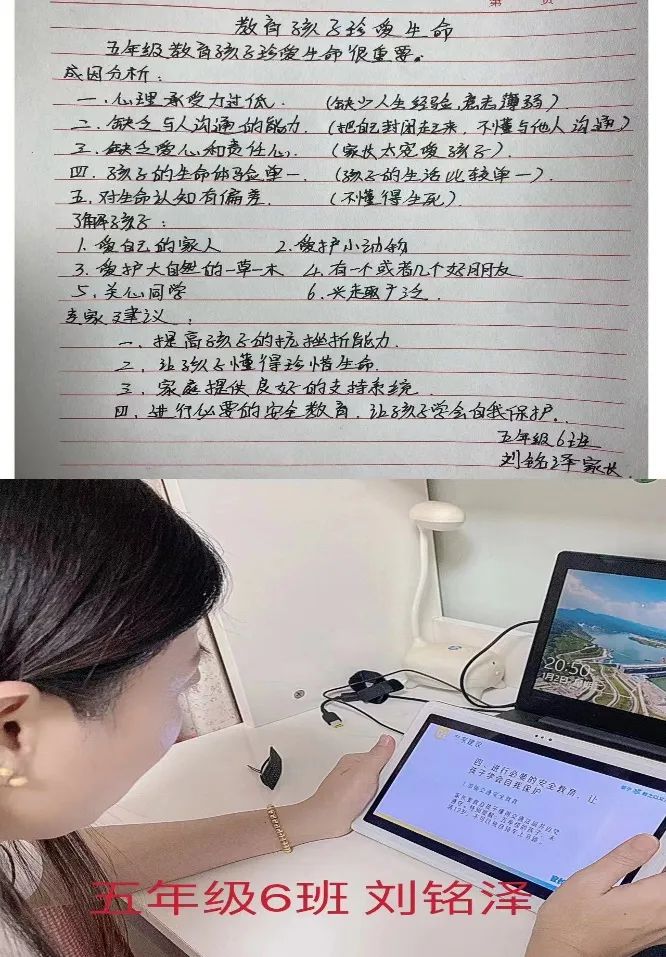 第 页
教育孩子珍爱生命
五年级教育孩子珍爱生命很重要。
成因分析：
一、心理承受力过低. （缺少人生经验，意志薄弱）
二、缺乏与人沟通的能力. （把自己封闭起来，不懂与他人沟通）
三、缺乏爱心和责任心. （家长太宠爱孩子）.
四、孩子的生命体验单一. （孩子的生活比较单一）.
五、对生命认知有偏差. （不懂得生死）
了解孩子：
1. 爱自己的家人 2. 爱护小动物
3. 爱护大自然的一草一木 4. 有一个或者几个好朋友
5. 关心同学 6. 兴趣广泛.
专家建议：
一、提高孩子的抗挫折能力.
二、让孩子懂得珍惜生命.
三、家庭提供良好的支持系统.
四、进行必要的安全教育，让孩子学会自我保护.
五年级6班
刘铭泽家长.
20:50
四、进行必要的安全教育，让
孩子学会自我保护
五年级6班 刘铭泽